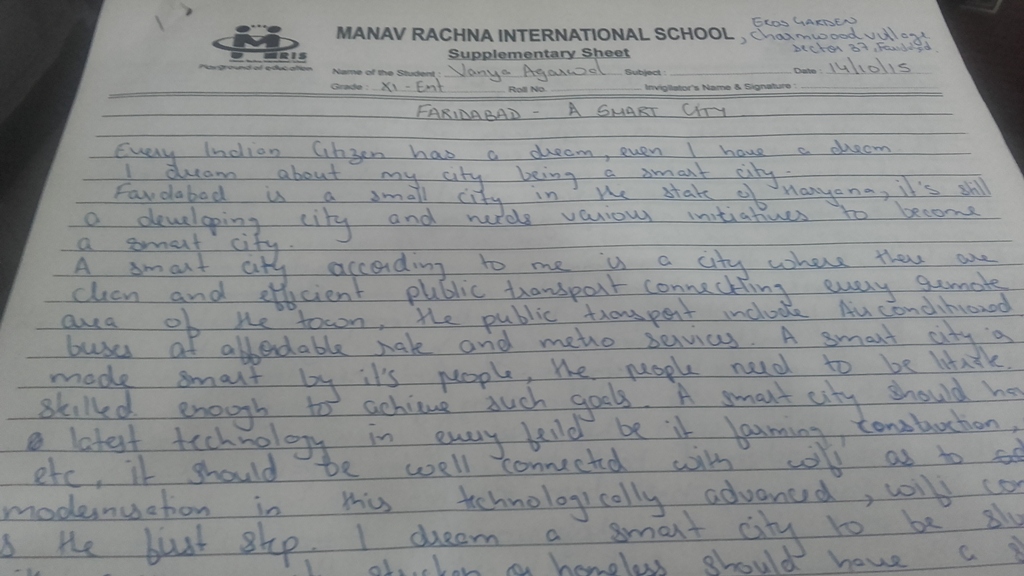 MANAV RACHNA INTERNATIONAL SCHOOL, Eros GARDEN
Charmwood village
Sector 37, Faridabad
MRIS
Playground of education
Supplementary Sheet
Name of the Student: Vanya Agarwal Subject: Date: 14/10/15
Grade: XI - Ent Roll No. Invigilator's Name & Signature:
FARIDABAD - A SMART CITY
Every Indian Citizen has a dream, even I have a dream
I dream about my city being a smart city.
Faridabad is a small city in the state of Haryana, it's still
a developing city and needs various initiatives to become
a smart city.
A smart city according to me is a city where there are
clean and efficient public transport connecting every remote
area of the town, the public transport include Air conditioned
buses at affordable rate and metro services. A smart city is
made smart by it's people, the people need to be
skilled enough to achieve such goals. A smart city should
latest technology in every feild be it farming, construction,
etc, it should be well connected with wifi as to
modernisation in this technologically advanced, wifi
the first step. I dream a smart city to be
homeless should have a